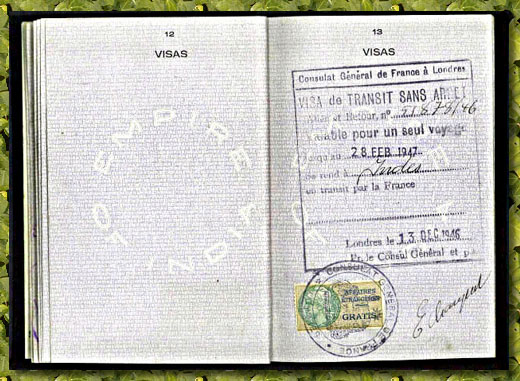 12
VISAS
EMPIRE
OF INDIA
13
VISAS
Consulat Général de France à Londres
VISA de TRANSIT SANS ARRET
Aller et Retour, n°
Valable pour un seul voyage
Jusqu'au 28 FEB 1947
se rend à
en transit par la France
Londres le 13 DEC 1946
Pr. le Consul Général et p
CONSULAT G
DE FRANCE
AFFAIRES
ETRANGERES
GRATIS